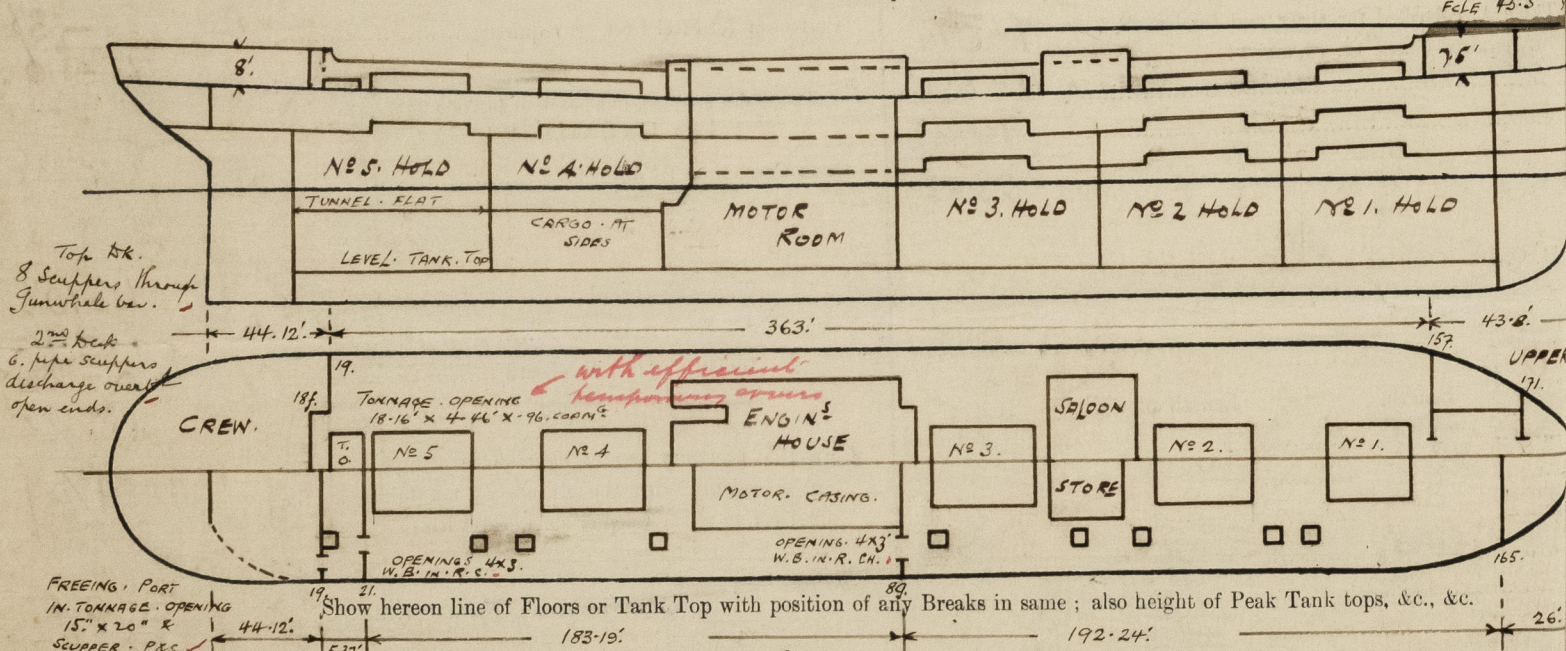 FCLE 43.5
8'.
7.5'
Nº 5. HOLD
Nº 4. HOLD
MOTOR
ROOM
Nº 3. HOLD
Nº 2 HOLD
Nº 1. HOLD
TUNNEL. FLAT
CARGO. AT
SIDES
LEVEL. TANK. TOP
Top Dk.
8 Scuppers through
Gunwhale bar.
2nd Deck
6. pipe scuppers
discharge overb^d
open ends.
44.12'.
363'.
43.8'.
157.
UPPER
171.
19.
18f.
CREW.
TONNAGE. OPENING
18.16' x 4.46' x .96. COAMG
with efficient
temporary covers
T.
O.
Nº 5
Nº 4
ENGINS
HOUSE
MOTOR. CASING.
Nº 3.
SALOON
STORE
Nº 2.
Nº 1.
OPENINGS 4x3.
W.B. IN. R.C.
OPENING. 4x3'
W.B. IN. R. CH.
165.
FREEING. PORT
IN. TONNAGE. OPENING
15." x 20" &
SCUPPER. P&S
19.
21.
89.
Show hereon line of Floors or Tank Top with position of any Breaks in same ; also height of Peak Tank tops, &c., &c.
44.12'.
5.37'
183.19'.
192.24'.
26'.